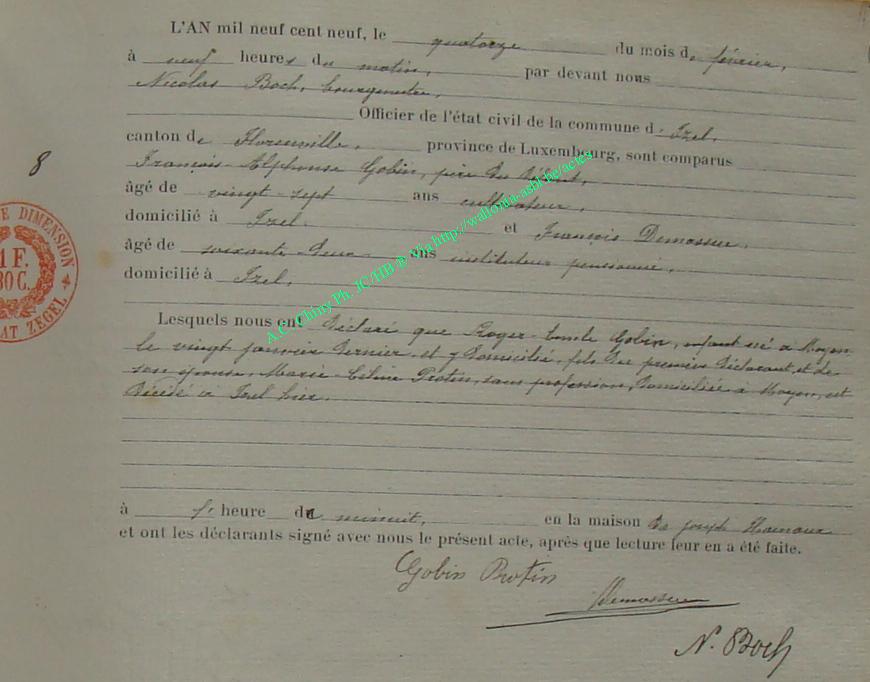 L'AN mil neuf cent neuf, le quatorze du mois de février,
à neuf heures du matin, par devant nous
Nicolas Boch, bourgmestre,
Officier de l'état civil de la commune d' Izel,
canton de Florenville, province de Luxembourg, sont comparus
François-Alphonse Gobin, père du défunt,
âgé de vingt-sept ans cultivateur,
domicilié à Izel et François Demasseu,
âgé de soixante-deux ans instituteur pensionné,
domicilié à Izel,
8
E DIMENSION
1 F.
30 C.
AT ZEGEL
A.C. Chiny Ph. JC/HB ® Via http://wallonia-asbl.be/actes
Lesquels nous ont déclaré que Roger Gobin, enfant né à Moyen
le vingt janvier dernier et y domicilié, fils du premier déclarant et de
son épouse, Marie-Céline Protin, sans profession, domiciliée à Moyen, est
décédé à Izel hier,
à l' heure de minuit, en la maison de Joseph Hainaux
et ont les déclarants signé avec nous le présent acte, après que lecture leur en a été faite.
Gobin Protin
Demasseu
N. Boch